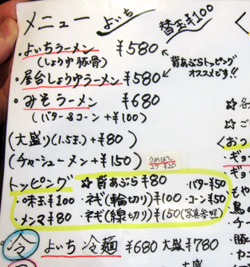 メニュー よいち
替玉¥100
・よいちラーメン ¥580
(しょうゆ豚骨)
・屋台しょうゆラーメン ¥580
背あぶらトッピング
オススメです!!
・みそラーメン ¥680
(バター&コーン +¥100)
(大盛り(1.5玉) +¥80)
(チャーシューメン +¥150)
トッピング ☆背あぶら ¥80 バター¥50
・味玉¥100 ・ネギ(輪切り)¥100 ・コーン¥50
・メンマ¥80 ・ネギ(線切り)¥150
冷 よいち冷麺 ¥680 大盛¥780